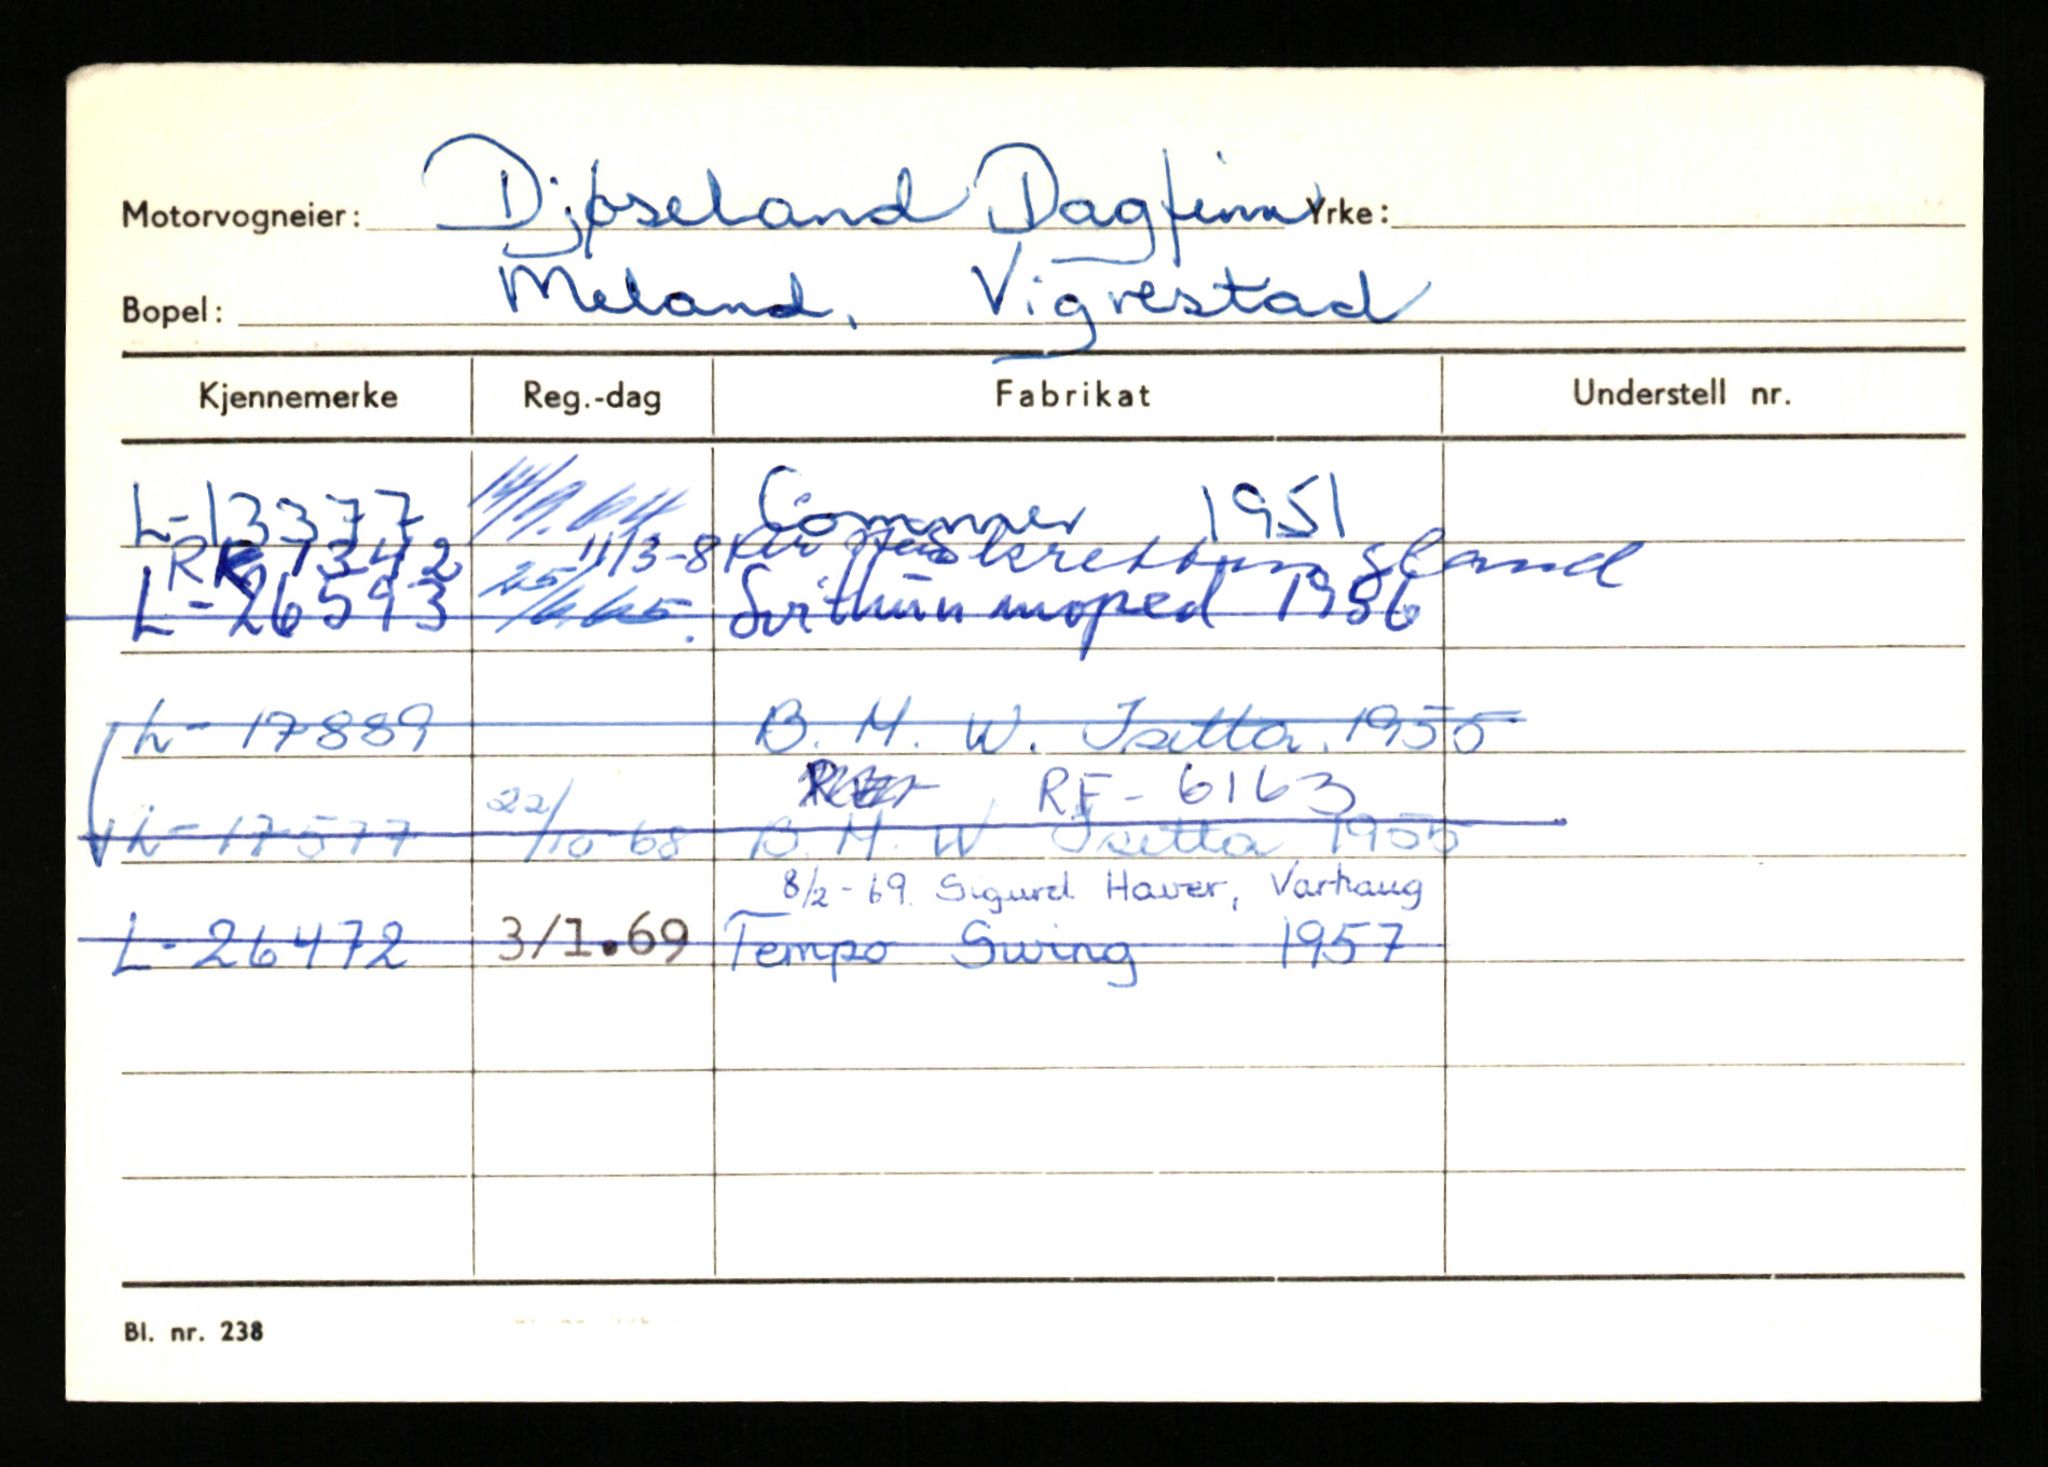 Motorvogneier: Djøseland Dagfinn Yrke:
Bopel: Meland, Vigrestad
Kjennemerke Reg.-dag Fabrikat Understell nr.
L-13377 14/9.64 Commer 1951
RK 1342 11/3-8
L-26593 25/6.65. Svithun moped 1956
L-17889 B.M.W. Isetta. 1955
RF-6163
L-17577 22/10-68 B.M.W. Isetta 1955
8/2-69. Sigurd Haver, Varhaug
L-26472 3/1.69 Tempo Swing 1957
Bl. nr. 238